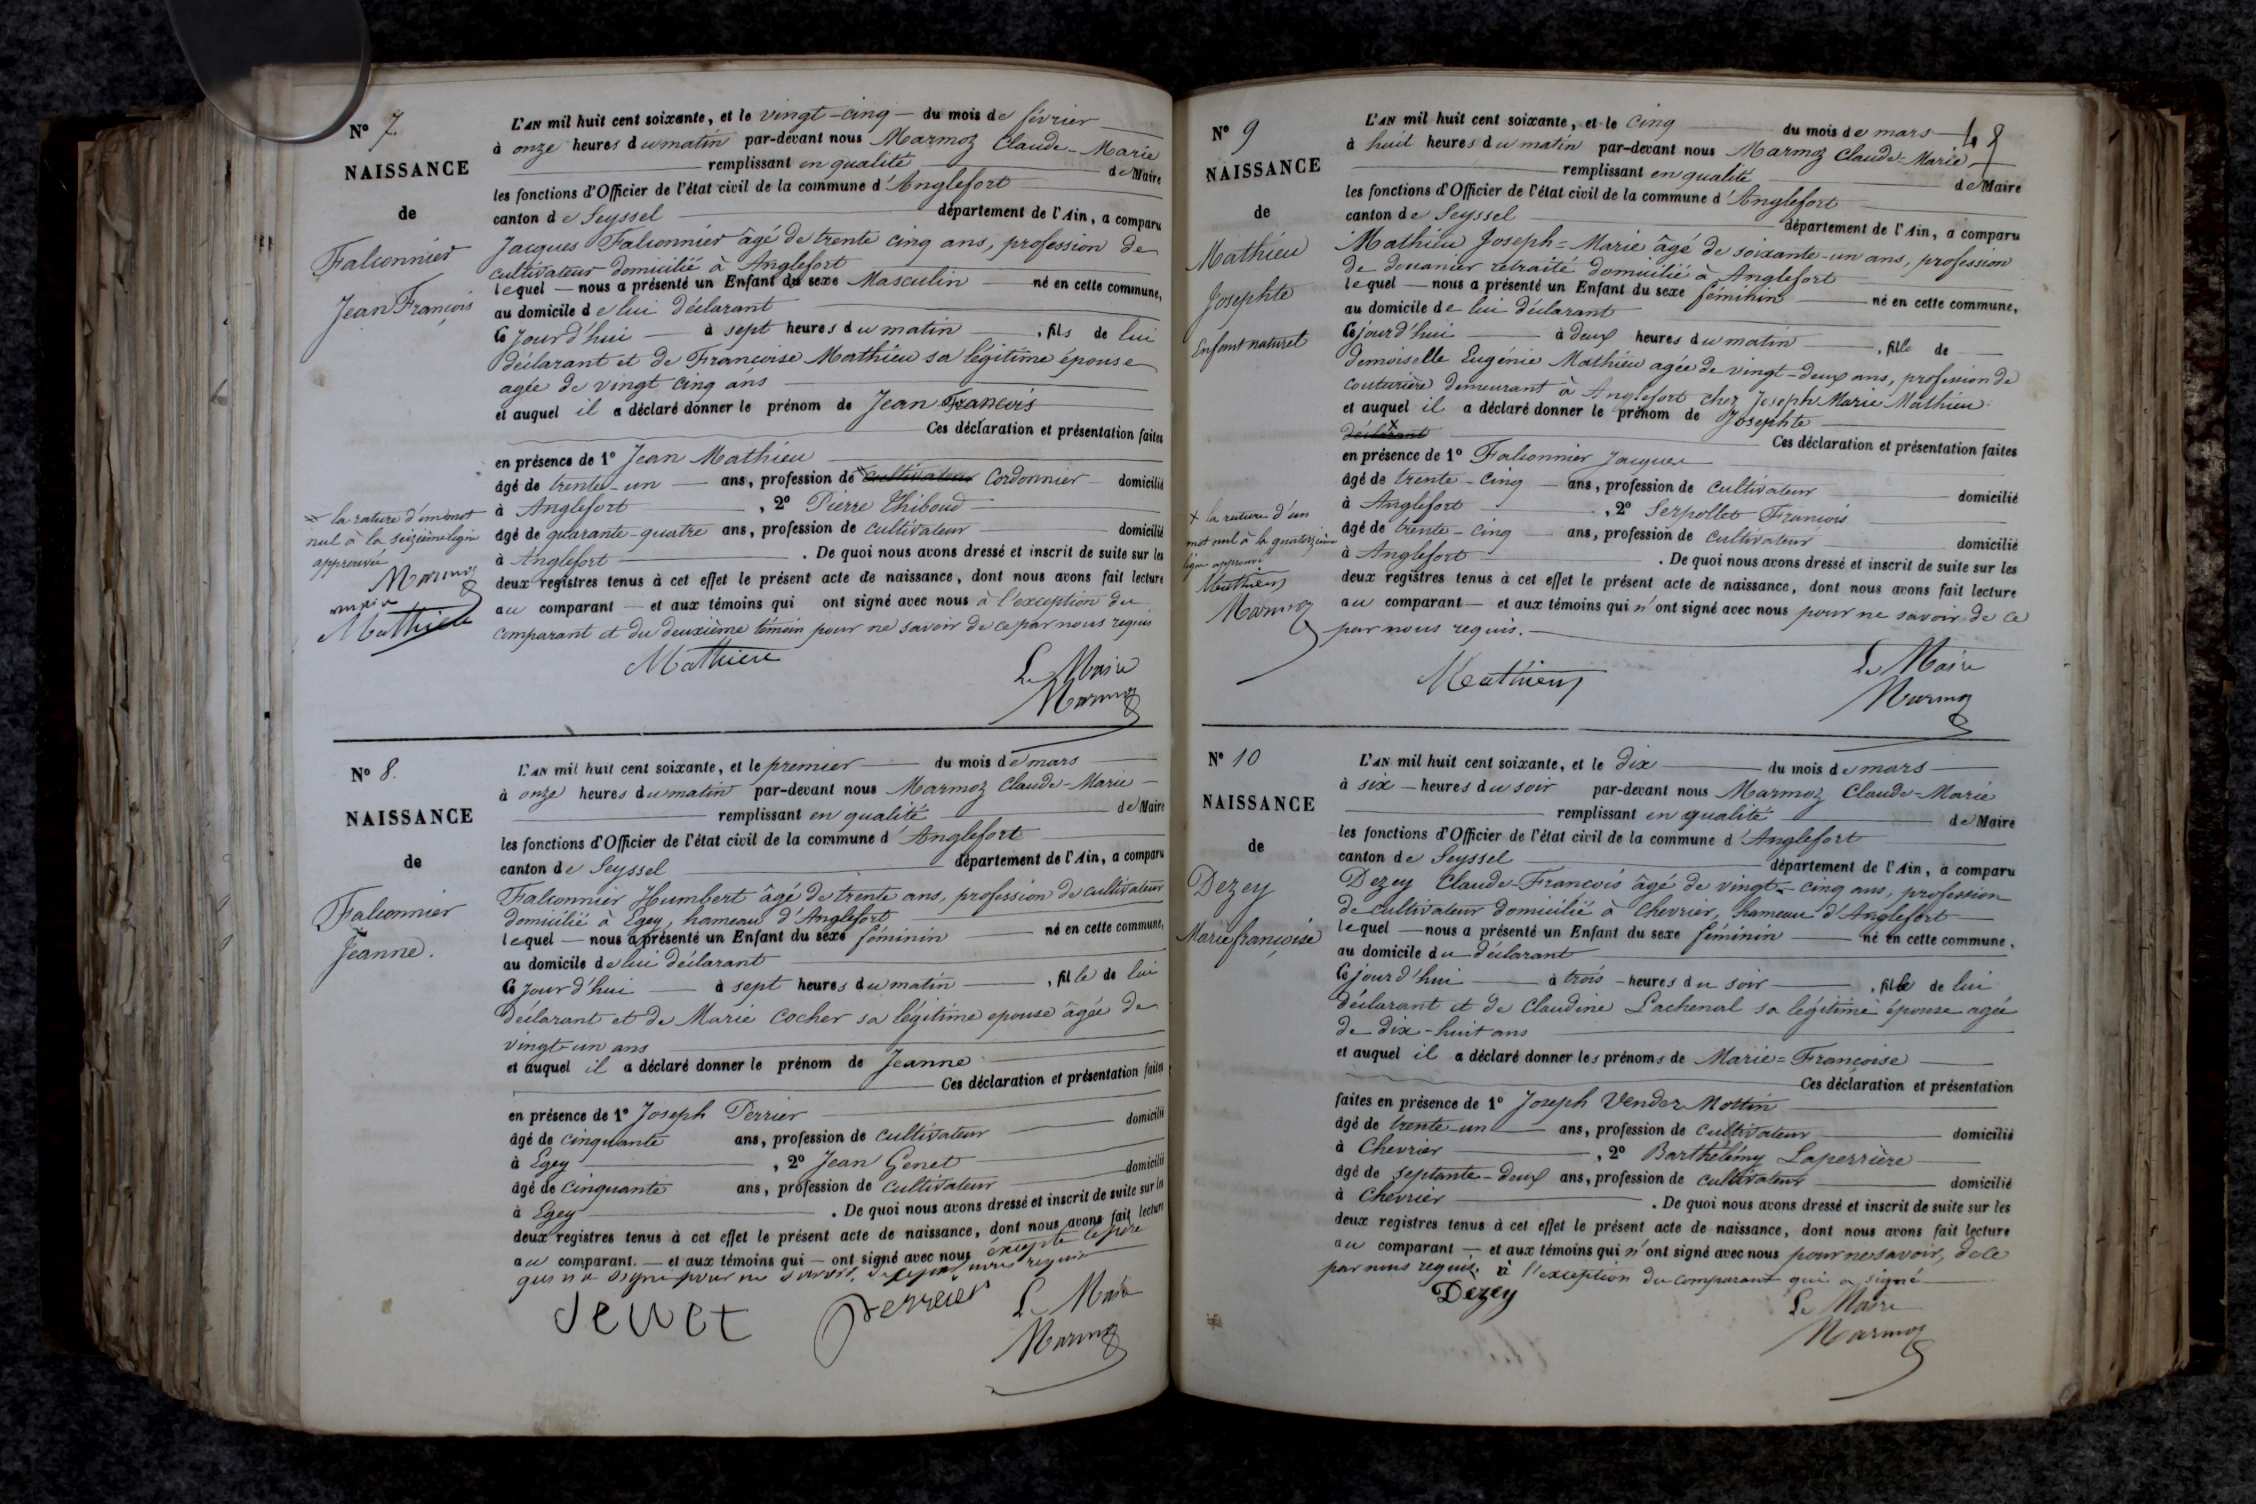 N° 7
NAISSANCE
de
Falconnier
Jean François
L'AN mil huit cent soixante, et le vingt-cinq du mois de février
à onze heures du matin par-devant nous Marmoz Claude-Marie
remplissant en qualité de Maire
les fonctions d'Officier de l'état civil de la commune d'Anglefort
canton de Seyssel département de l'Ain, a comparu
Jacques Falconnier âgé de trente cinq ans, profession de
cultivateur domicilié à Anglefort
lequel nous a présenté un Enfant du sexe Masculin né en cette commune,
au domicile de lui déclarant
Cejourd'hui à sept heures du matin, fils de lui
déclarant et de Françoise Mathieu sa légitime épouse
agée de vingt cinq ans
et auquel il a déclaré donner le prénom de Jean François
Ces déclaration et présentation faites
en présence de 1° Jean Mathieu
âgé de trente-un ans, profession de cultivateur Cordonnier domicilié
à Anglefort, 2° Pierre Thiboud
âgé de quarante-quatre ans, profession de cultivateur domicilié
à Anglefort. De quoi nous avons dressé et inscrit de suite sur les
deux registres tenus à cet effet le présent acte de naissance, dont nous avons fait lecture
au comparant et aux témoins qui ont signé avec nous à l'exception du
comparant et du deuxième témoin pour ne savoir de ce par nous requis
x la rature d'un mot
nul à la seizième ligne
approuvée
Marmoz
maire
Mathieu
Mathieu
Le Maire
Marmoz
N° 8.
NAISSANCE
de
Falconnier
Jeanne.
L'AN mil huit cent soixante, et le premier du mois de mars
à onze heures du matin par-devant nous Marmoz Claude-Marie
remplissant en qualité de Maire
les fonctions d'Officier de l'état civil de la commune d'Anglefort
canton de Seyssel département de l'Ain, a comparu
Falconnier Humbert âgé de trente ans, profession de cultivateur
domicilié à Egey, hameau d'Anglefort
lequel nous a présenté un Enfant du sexe féminin né en cette commune,
au domicile de lui déclarant
Cejourd'hui à sept heures du matin, fille de lui
déclarant et de Marie Cocher sa légitime epouse âgée de
vingt-un ans
et auquel il a déclaré donner le prénom de Jeanne
Ces déclaration et présentation faites
en présence de 1° Joseph Perrier
âgé de cinquante ans, profession de cultivateur domicilié
à Egey, 2° Jean Genet
âgé de cinquante ans, profession de cultivateur domicilié
à Egey. De quoi nous avons dressé et inscrit de suite sur les
deux registres tenus à cet effet le présent acte de naissance, dont nous avons fait lecture
au comparant. et aux témoins qui ont signé avec nous excepté le père
qui n'a signé pour ne savoir, de ce par nous requis
Jenet
Perrier
Le Maire
Marmoz
48
N° 9
NAISSANCE
de
Mathieu
Josephte
Enfant naturel
L'AN mil huit cent soixante, et le cinq du mois de mars
à huit heures du matin par-devant nous Marmoz Claude-Marie
remplissant en qualité de Maire
les fonctions d'Officier de l'état civil de la commune d'Anglefort
canton de Seyssel département de l'Ain, a comparu
Mathieu Joseph=Marie âgé de soixante-un ans, profession
de douanier retraité domicilié à Anglefort
lequel nous a présenté un Enfant du sexe féminin né en cette commune,
au domicile de lui déclarant
Cejourd'hui à deux heures du matin, fille de
demoiselle Eugénie Mathieu agée de vingt-deux ans, profession de
couturière demeurant à Anglefort chez Joseph Marie Mathieu
et auquel il a déclaré donner le prénom de Josephte
déclarant
Ces déclaration et présentation faites
en présence de 1° Falconnier Jacques
âgé de trente-cinq ans, profession de cultivateur domicilié
à Anglefort, 2° Serpollet François
âgé de trente-cinq ans, profession de cultivateur domicilié
à Anglefort. De quoi nous avons dressé et inscrit de suite sur les
deux registres tenus à cet effet le présent acte de naissance, dont nous avons fait lecture
au comparant et aux témoins qui n'ont signé avec nous pour ne savoir de ce
par nous requis.
x la rature d'un
mot nul à la quatorzième
ligne approuvé
Mathieu
Marmoz
Mathieu
Le Maire
Marmoz
N° 10
NAISSANCE
de
Dezey
Marie françoise
L'AN mil huit cent soixante, et le dix du mois de mars
à six heures du soir par-devant nous Marmoz Claude-Marie
remplissant en qualité de Maire
les fonctions d'Officier de l'état civil de la commune d'Anglefort
canton de Seyssel département de l'Ain, a comparu
Dezey Claude-François âgé de vingt-cinq ans, profession
de cultivateur domicilié à Chevrier, hameau d'Anglefort
lequel nous a présenté un Enfant du sexe féminin né en cette commune,
au domicile du déclarant
Cejourd'hui à trois heures du soir, fille de lui
déclarant et de Claudine Lachenal sa légitime épouse agée
de dix-huit ans
et auquel il a déclaré donner les prénoms de Marie=Françoise
Ces déclaration et présentation
faites en présence de 1° Joseph Vender Mottin
âgé de trente-un ans, profession de cultivateur domicilié
à Chevrier, 2° Barthélémy Laperrière
âgé de septante-deux ans, profession de cultivateur domicilié
à Chevrier. De quoi nous avons dressé et inscrit de suite sur les
deux registres tenus à cet effet le présent acte de naissance, dont nous avons fait lecture
au comparant et aux témoins qui n'ont signé avec nous pour ne savoir, de ce
par nous requis. à l'exception du comparant qui a signé
Dezey
Le Maire
Marmoz